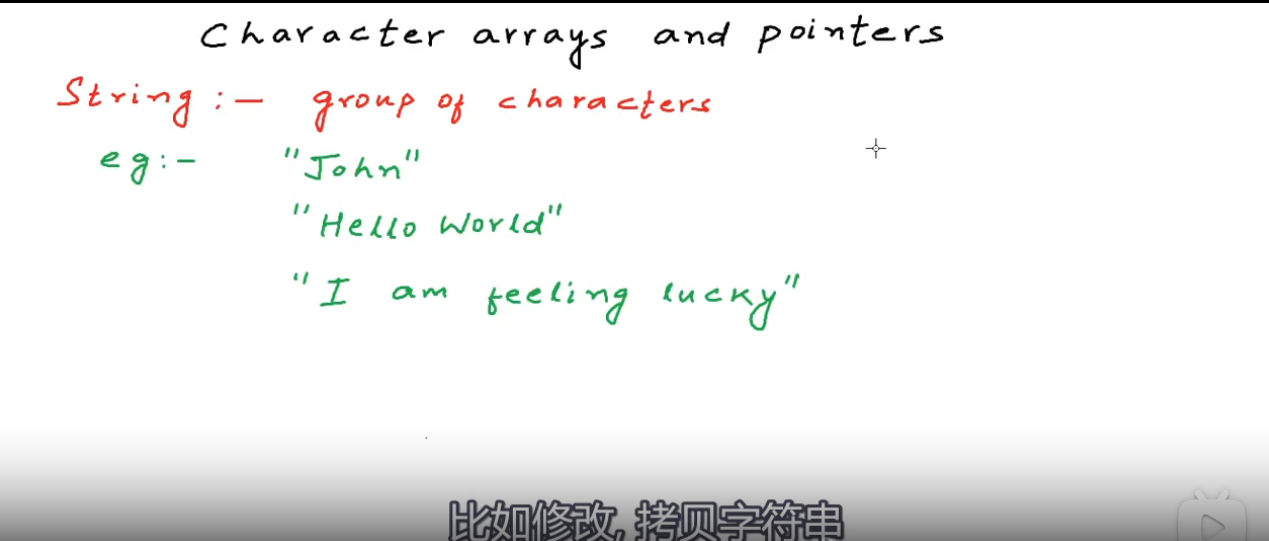 Character arrays and pointers
String :- group of characters
eg:- "John"
"Hello World"
"I am feeling lucky"
比如修改, 拷贝字符串